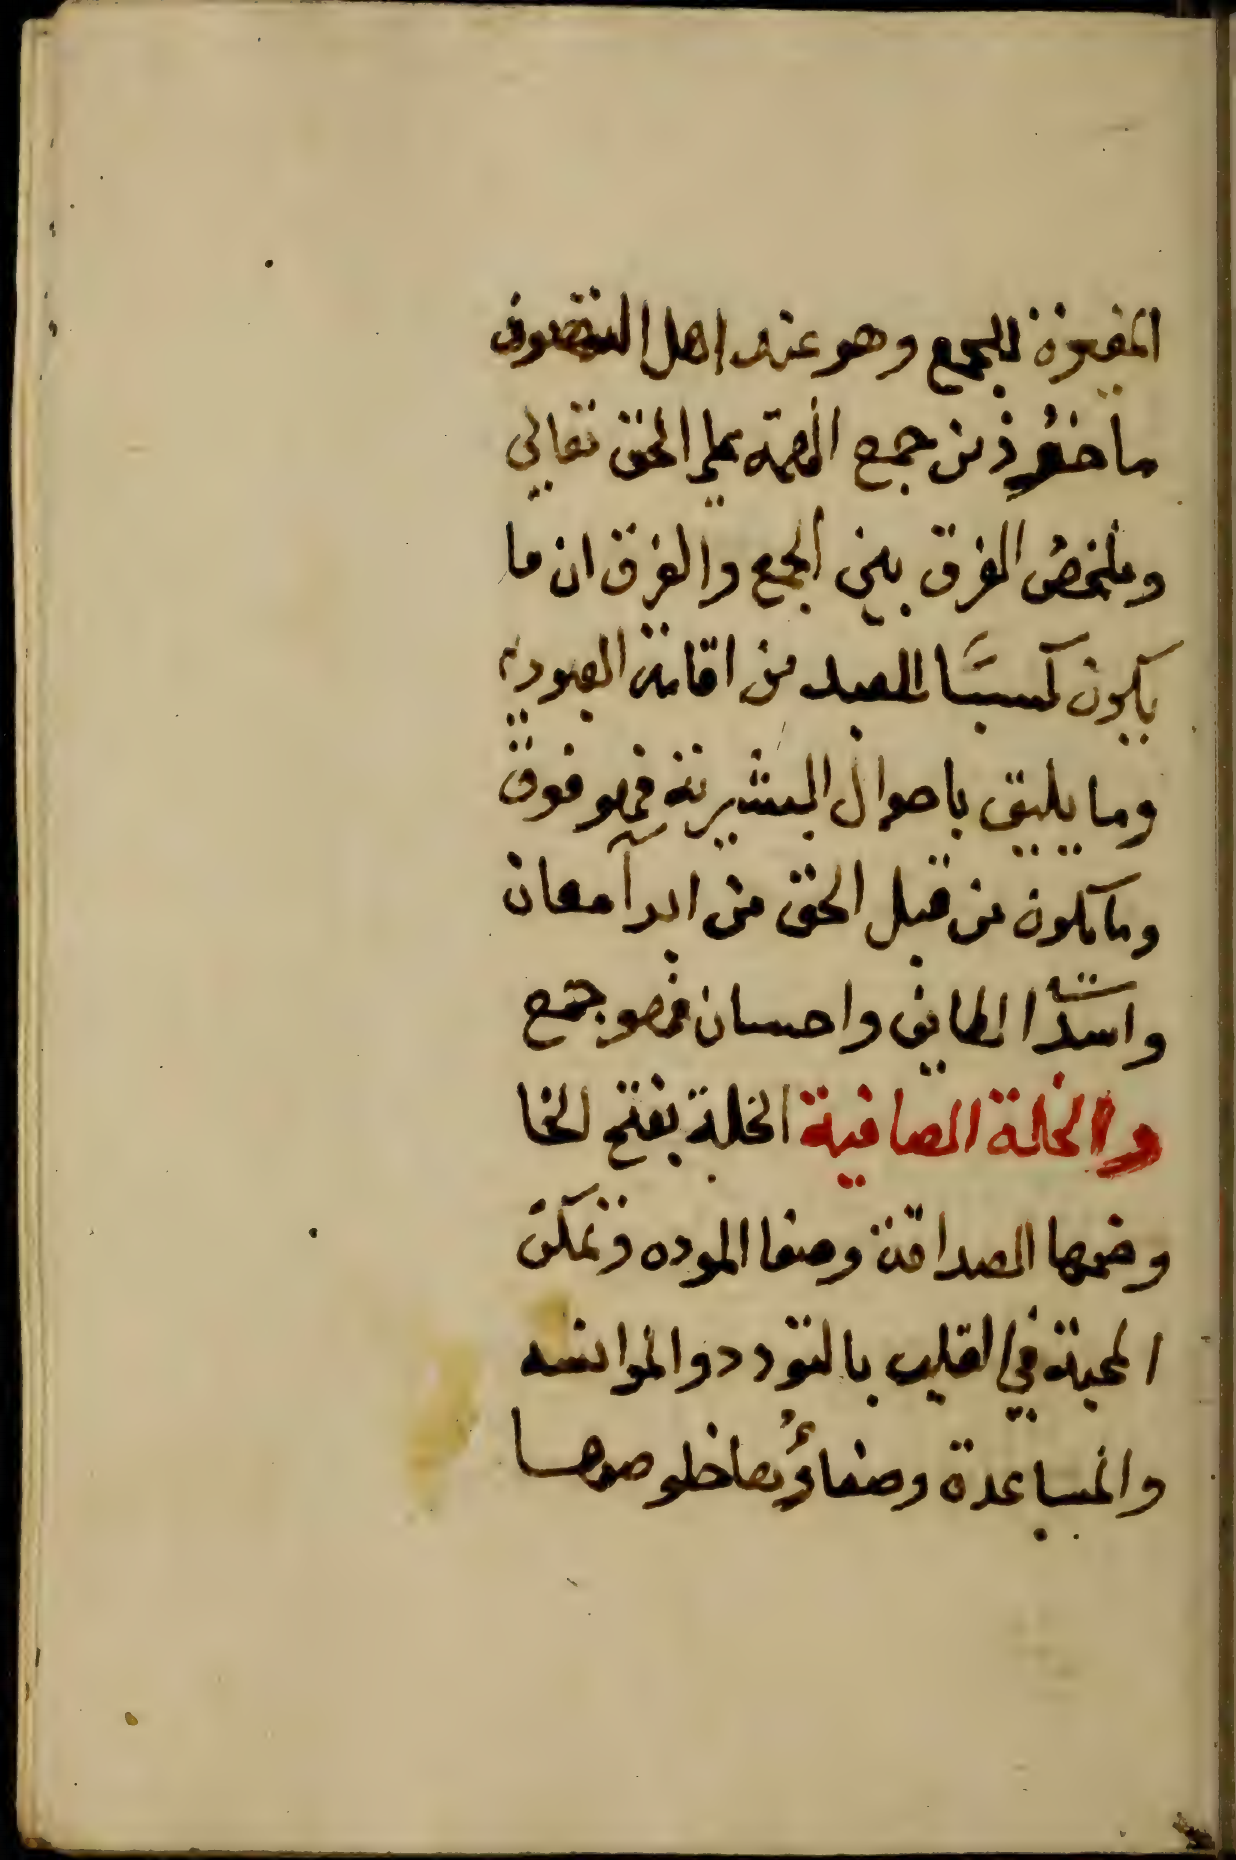 المفيدة للجمع وهو عند اهل التصوف
ماخوذ من جمع الهمة على الحق تعالى
وملخص الفرق بين الجمع والفرق ان ما
يكون كسبًا للعبد من اقامة العبودية
وما يليق باحوال البشرية فهو فرق
وما يكون من قبل الحق من ابدآ معان
واسدآ لطايف واحسان فهو جمع
والخلة الصافية الخلة بفتح الخا
وضمها الصداقة وصفا الموده وتمكن
المحبة في القلب بالتودد والموانسه
والمساعدة وصفاؤها خلوصها